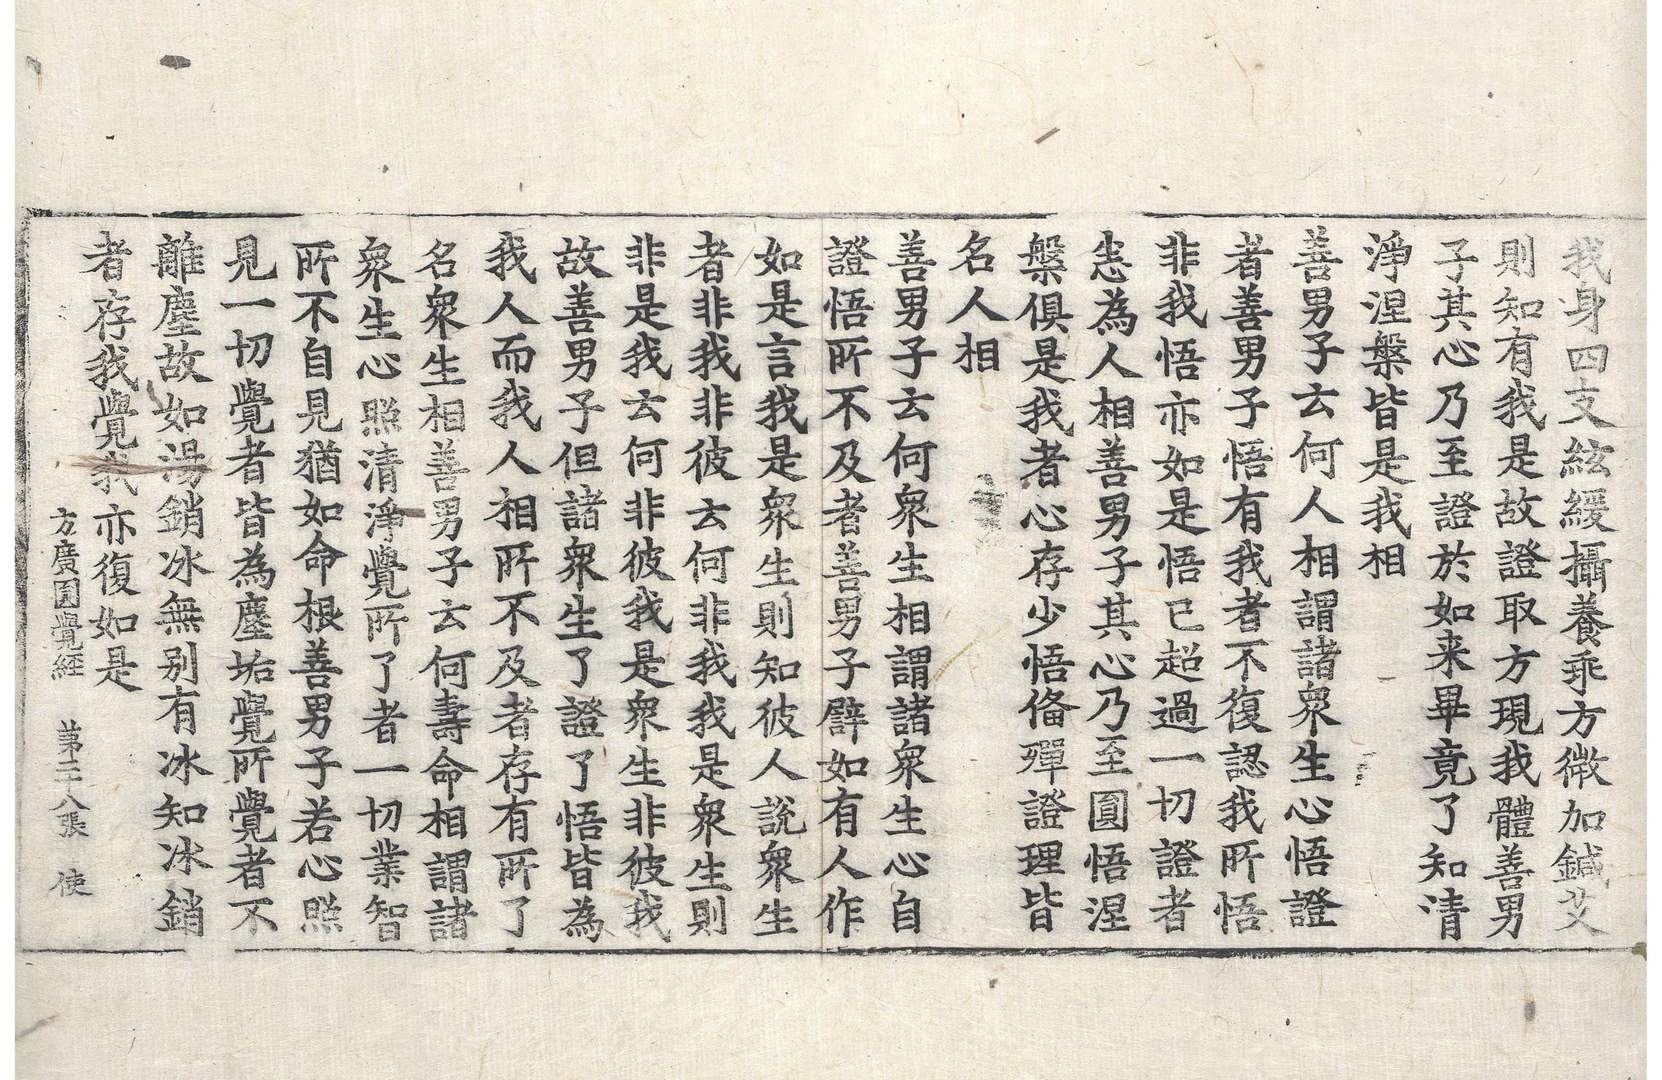 我身四支絃緩攝養乖方微加鍼艾
則知有我是故證取方現我體善男
子其心乃至證於如来畢竟了知清
淨涅槃皆是我相
善男子云何人相謂諸衆生心悟證
者善男子悟有我者不復認我所悟
非我悟亦如是悟已超過一切證者
悉為人相善男子其心乃至圓悟涅
槃俱是我者心存少悟俻殫證理皆
名人相
善男子云何衆生相謂諸衆生心自
證悟所不及者善男子譬如有人作
如是言我是衆生則知彼人說衆生
者非我非彼云何非我我是衆生則
非是我云何非彼我是衆生非彼我
故善男子但諸衆生了證了悟皆為
我人而我人相所不及者存有所了
名衆生相善男子云何壽命相謂諸
衆生心照清淨覺所了者一切業智
所不自見猶如命根善男子若心照
見一切覺者皆為塵垢覺所覺者不
離塵故如湯銷冰無别有冰知冰銷
者存我覺我亦復如是
方廣圓覺経 苐二十八張 使